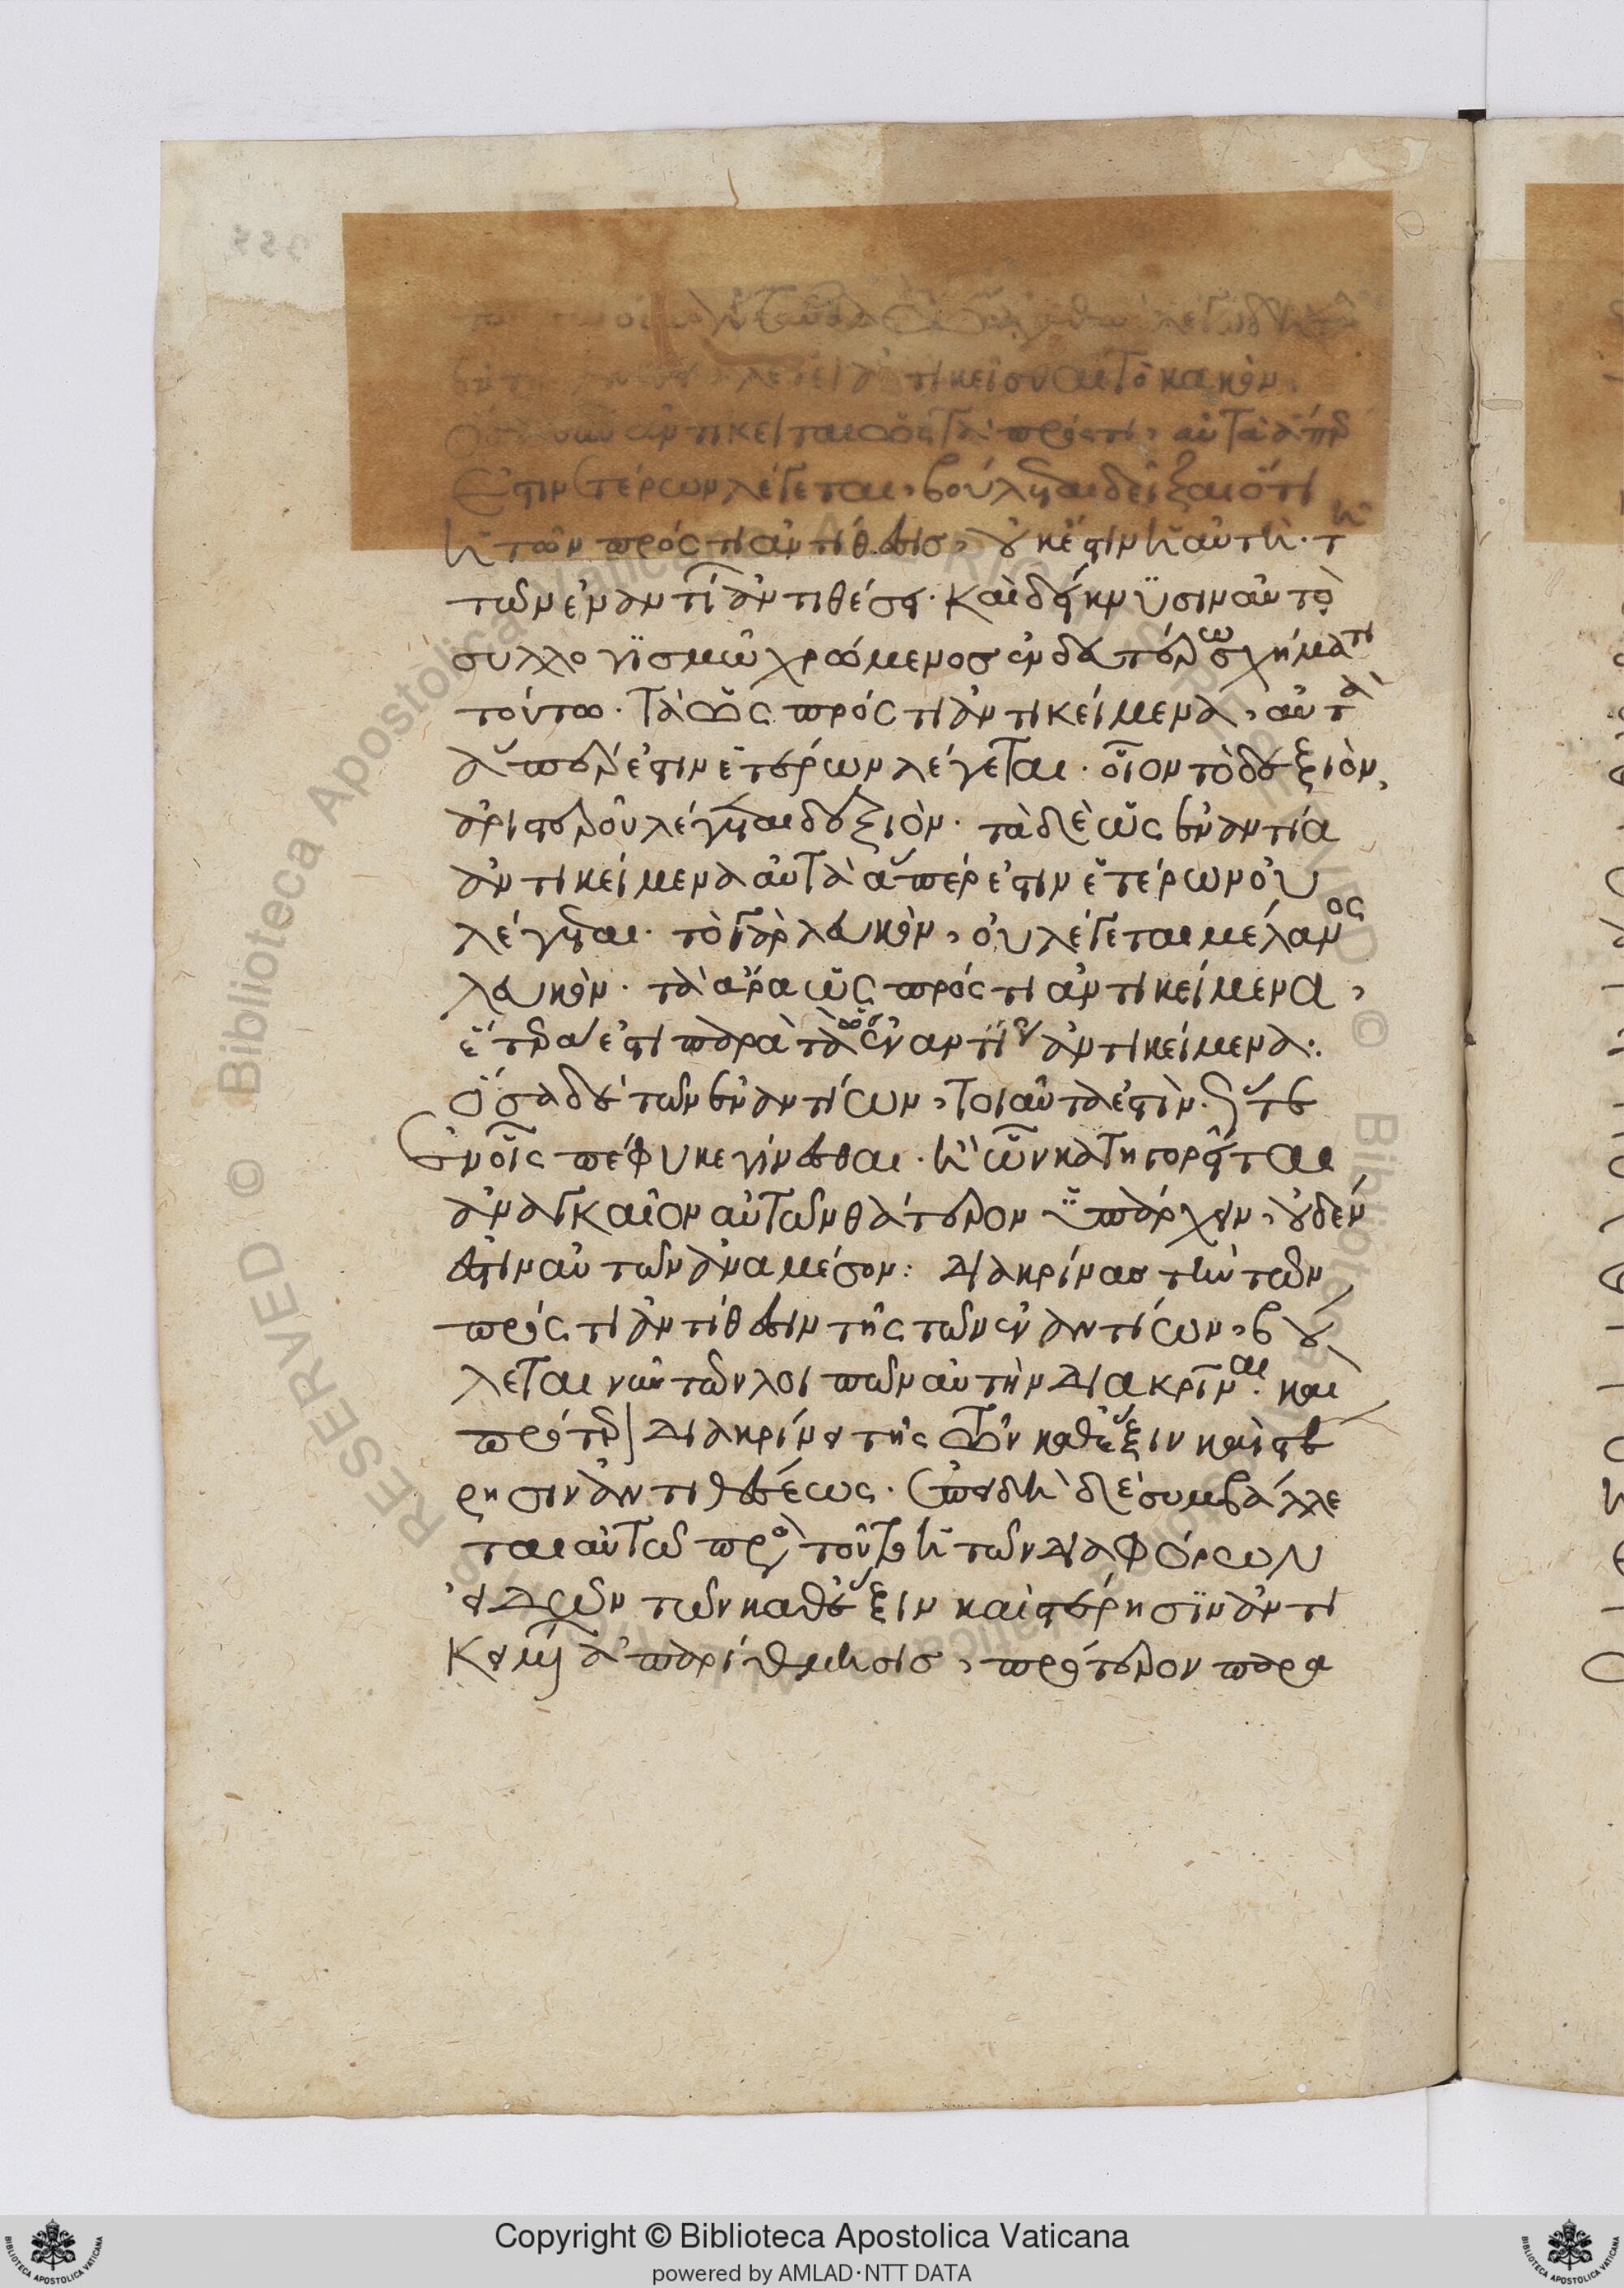 ἀντικεῖσθαι τὸ κακόν.
ἀντίκειται ὡς τὰ πρός τι, αὐτὰ ἅπερ
ἐστὶν ἑτέρων λέγεται, βούλεται δεῖξαι ὅτι
ἡ τῶν πρός τι ἀντίθεσις, οὐκ ἔστιν ἡ αὐτὴ τῇ
τῶν ἐναντίων ἀντιθέσει. καὶ δείκνυσιν αὐτὸ
συλλογισμῷ χρώμενος ἐν δευτέρῳ σχήματι
τούτῳ. τὰ ὡς πρός τι ἀντικείμενα, αὐτὰ
ἅπερ ἐστὶν ἑτέρων λέγεται. οἷον τὸ δεξιὸν,
ἀριστεροῦ λέγεται δεξιόν. τὰ δὲ ὡς ἐναντία
ἀντικείμενα αὐτὰ ἅπερ ἐστὶν ἑτέρων οὐ
λέγεται. τὸ γὰρ λευκὸν, οὐ λέγεται μέλανος
λευκόν. τὰ ἄρα ὡς πρός τι ἀντικείμενα,
ἕτερά ἐστι παρὰ τὰ ὡς ἐναντία ἀντικείμενα:
Ὅσα δὲ τῶν ἐναντίων, τοιαῦτά ἐστιν ὥστε
ἐν οἷς πέφυκε γίνεσθαι. ἢ ὧν κατηγορεῖται
ἀναγκαῖον αὐτῶν θάτερον ὑπάρχειν, οὐδέν
ἐστιν αὐτῶν ἀνὰ μέσον: Διακρίνας τὴν τῶν
πρός τι ἀντίθεσιν τῆς τῶν ἐναντίων, βού
λεται νῦν τῶν λοιπῶν αὐτὴν διακρῖναι. καὶ
πρότερον διακρίνει τῆς τῶν καθ' ἕξιν καὶ στέ
ρησιν ἀντιθέσεως. ἐπειδὴ δὲ συμβάλλε
ται αὐτῷ πρὸς τοῦτο ἡ τῶν διαφόρων
εἰδῶν τῶν καθ' ἕξιν καὶ στέρησιν ἀντι
κειμένων ἀπαρίθμησις, πρότερον παρα